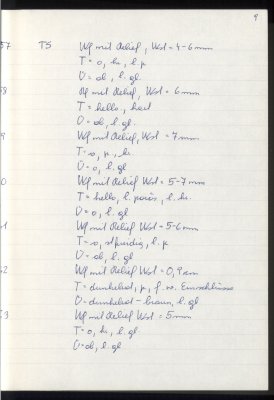 9
57 TS Wf mit Relief, Wst = 4-6mm
T = o, hr, l. p
Ü = ob, l. gl.
58 Wf mit Relief, Wst = 6mm
T = hello, hart
Ü = ob, l. gl.
9 Wf mit Relief, Wst = 7mm
T = o, p, hr.
Ü = o, l. gl
0 Wf mit Relief Wst = 5-7mm
T = hello, l. porös, l. hr.
Ü = o, l. gl
1 Wf mit Relief Wst = 5-6mm
T = o, l. p
Ü = ob, l. gl
2 Wf mit Relief Wst = 0,9cm
T = dunkelrot, p, f. w. Einschlüsse
Ü = dunkelrot-braun, l. gl
3 Wf mit Relief Wst = 5mm
T = o, hr, l. gl
Ü = ob, l. gl